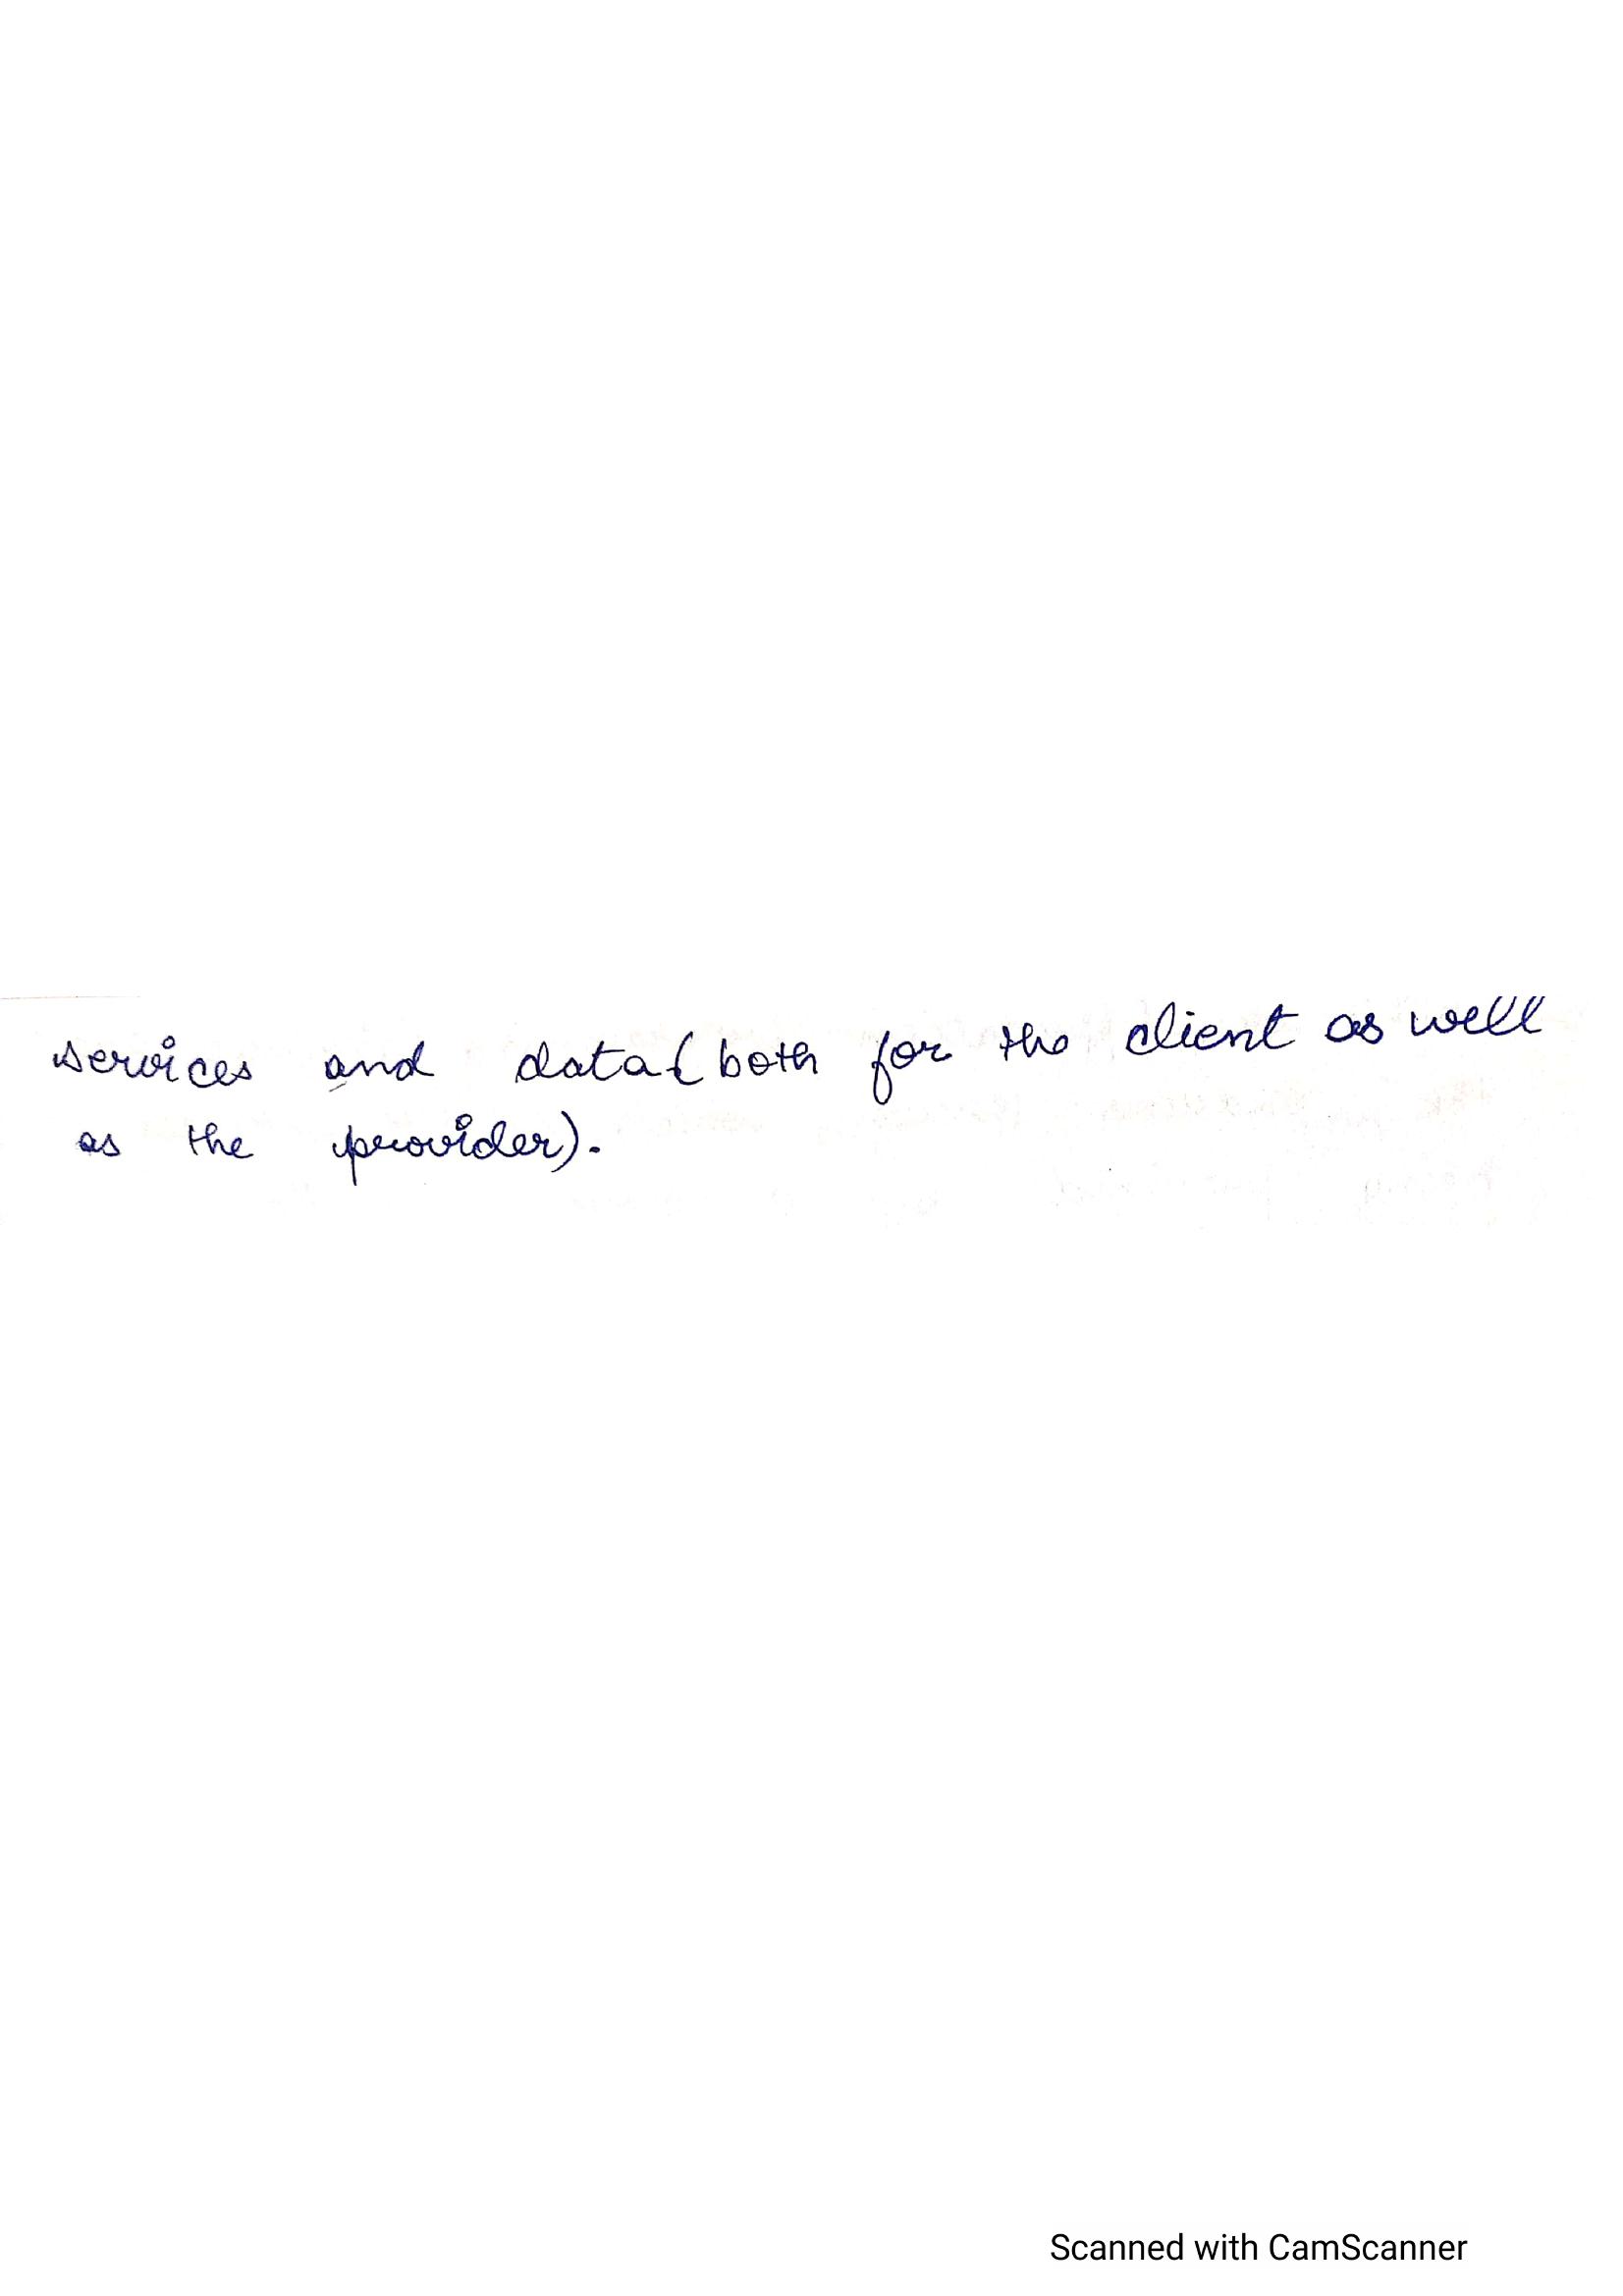 services and data (both for the client as well
as the provider).
Scanned with CamScanner